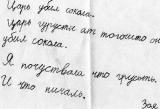 Царь убил сокола.
Царь грустит ат тогошто он
убил сокола.
Я почуствовала что грусть.
И что пичаль.